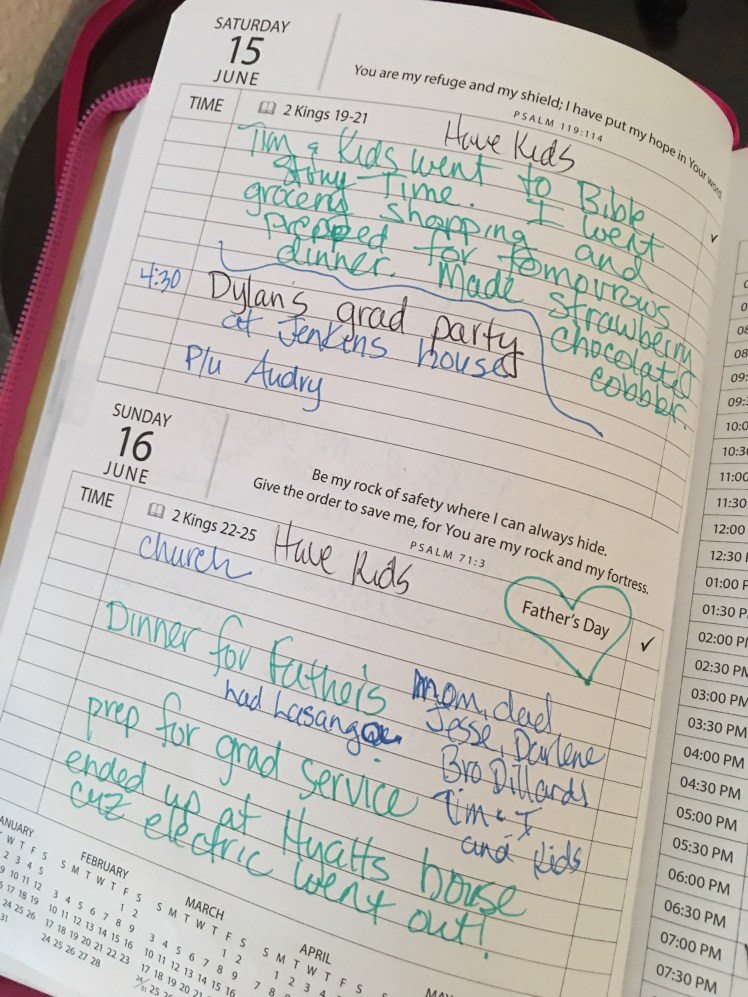 SATURDAY
15
JUNE
You are my refuge and my shield; I have put my hope in Your word.
PSALM 119:114
TIME
2 Kings 19-21
Have Kids
Tim & Kids went to Bible
Story Time. I went
grocery shopping and
prepped for tomorrows
dinner. Made strawberry
chocolate
cobbler.
4:30
Dylan's grad party
at Jenkens house
P/u Audry
SUNDAY
16
JUNE
Be my rock of safety where I can always hide.
Give the order to save me, for You are my rock and my fortress.
PSALM 71:3
TIME
2 Kings 22-25
Have Kids
Father's Day
church
Dinner for Father's
had Lasangae
Mom, dad
Jesse, Darlene
Bro Dillards
Tim & I
and kids
prep for grad service
ended up at Hyatts house
cuz electric went out!
ANUARY
W T F S
2 3 4 5
9 10 11 12
17 18 19
24 25 26
31
FEBRUARY
S M T W T F S
1 2
3 4 5 6 7 8 9
10 11 12 13 14 15 16
17 18 19 20 21 22 23
24 25 26 27 28
MARCH
S M T W T F S
1 2
3 4 5 6 7 8 9
10 11 12 13 14 15 16
17 18 19 20 21 22 23
APRIL
S M T W T F S
1 2 3 4
09:
10:0
10:3
11:00
11:30
12:00
12:30
01:00 P
01:30 P
02:00 PM
02:30 PM
03:00 PM
03:30 PM
04:00 PM
04:30 PM
05:00 PM
05:30 PM
06:00 PM
06:30 PM
07:00 PM
07:30 PM